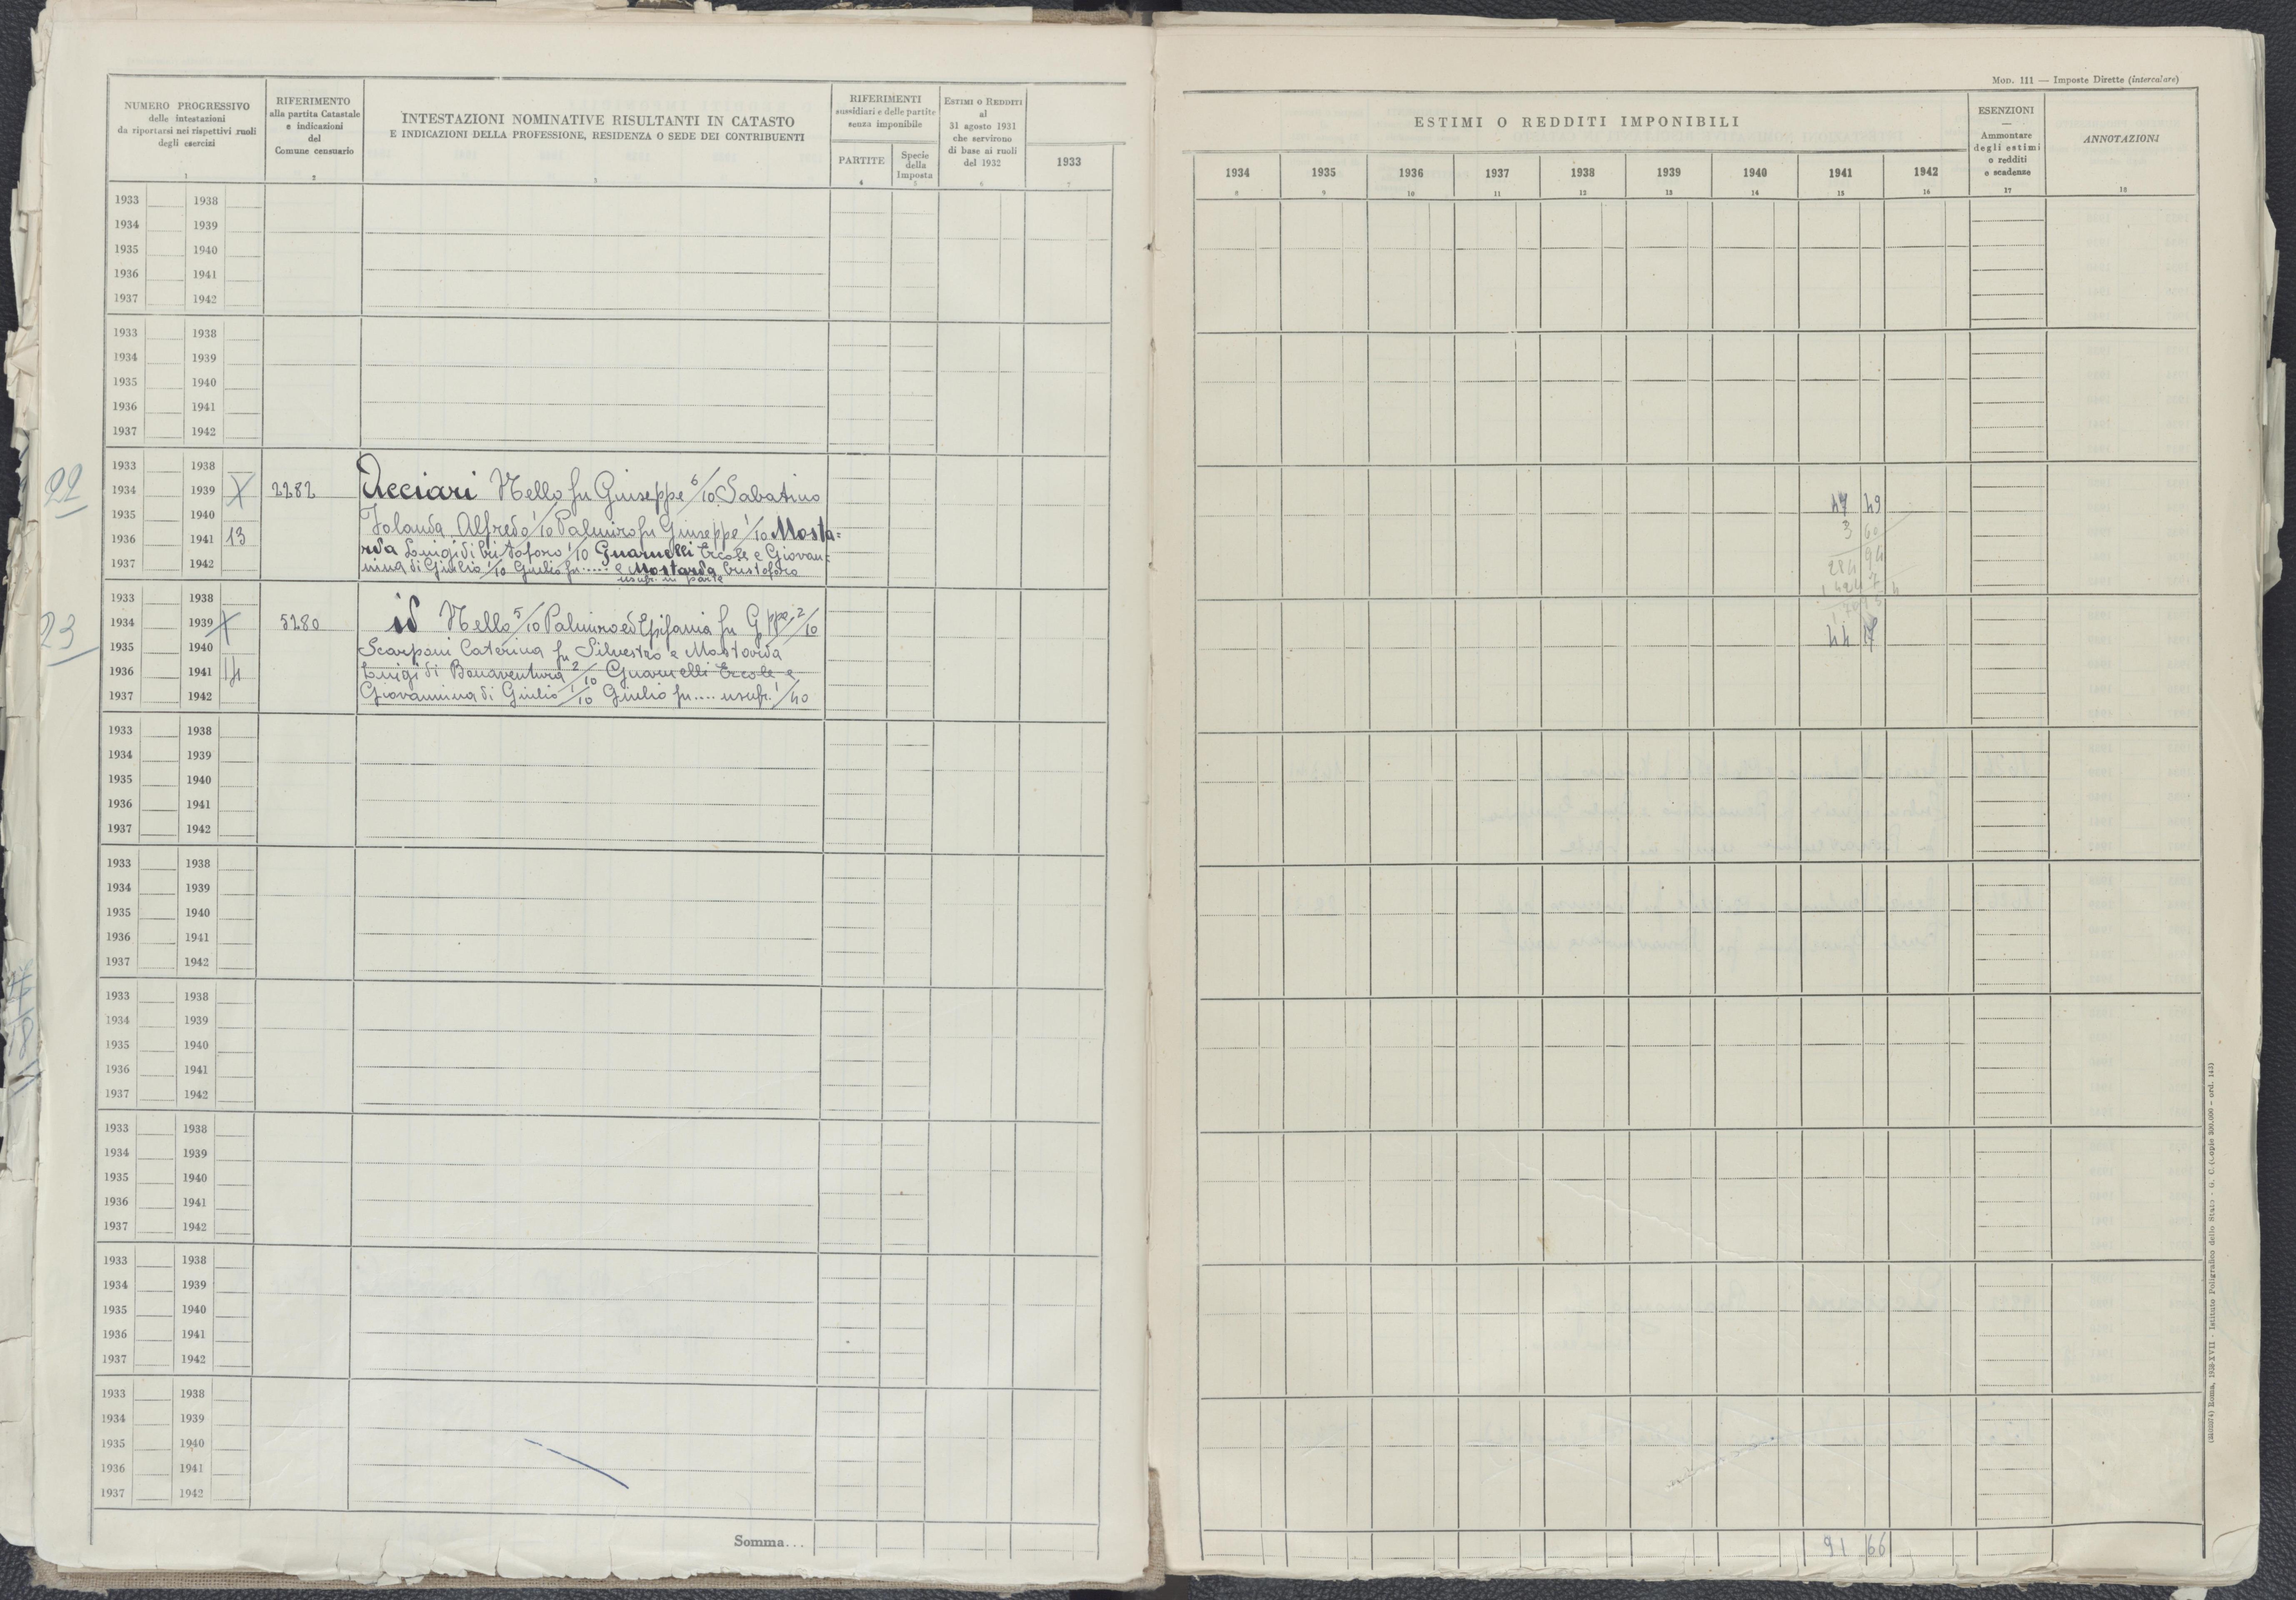 NUMERO PROGRESSIVO
delle intestazioni
da riportarsi nei rispettivi ruoli
degli esercizi
1
RIFERIMENTO
alla partita Catastale
e indicazioni
del
Comune censuario
2
INTESTAZIONI NOMINATIVE RISULTANTI IN CATASTO
E INDICAZIONI DELLA PROFESSIONE, RESIDENZA O SEDE DEI CONTRIBUENTI
3
RIFERIMENTI
sussidiari e delle partite
senza imponibile
PARTITE
4
Specie
della
Imposta
5
ESTIMI O REDDITI
al
31 agosto 1931
che servirono
di base ai ruoli
del 1932
6
1933
7
1933 1938
1934 1939
1935 1940
1936 1941
1937 1942
1933 1938
1934 1939
1935 1940
1936 1941
1937 1942
22
1933 1938
1934 1939 X 2282
1935 1940
1936 1941 13
1937 1942
Acciari Nello fu Giuseppe 6/10 Sabatino
Iolanda Alfredo 1/10 Palmiro fu Giuseppe 1/10 Mosta=
rda Luigi di Cristoforo 1/10 Guarnelli Ercole e Giovan=
nina di Giulio 1/10 Giulio fu..... e Mostarda Cristoforo
usufr. in parte
23
1933 1938
1934 1939 X 5280
1935 1940
1936 1941 14
1937 1942
id Nello 5/10 Palmiro ed Epifania fu Gppe 2/10
Scarponi Caterina fu Silvestro e Mostarda
Luigi di Bonaventura 2/10 Guarnelli Ercole e
Giovannina di Giulio 1/10 Giulio fu.... usufr. 1/40
1933 1938
1934 1939
1935 1940
1936 1941
1937 1942
1933 1938
1934 1939
1935 1940
1936 1941
1937 1942
1933 1938
1934 1939
1935 1940
1936 1941
1937 1942
1933 1938
1934 1939
1935 1940
1936 1941
1937 1942
1933 1938
1934 1939
1935 1940
1936 1941
1937 1942
1933 1938
1934 1939
1935 1940
1936 1941
1937 1942
Somma...
MOD. 111 — Imposte Dirette (intercalare)
ESTIMI O REDDITI IMPONIBILI
1934 1935 1936 1937 1938 1939 1940 1941 1942
8 9 10 11 12 13 14 15 16
ESENZIONI
—
Ammontare
degli estimi
o redditi
e scadenze
17
ANNOTAZIONI
18
47 49
3 60
44 17
91 66
Roma, 1939-XVII - Istituto Poligrafico dello Stato - G. C.